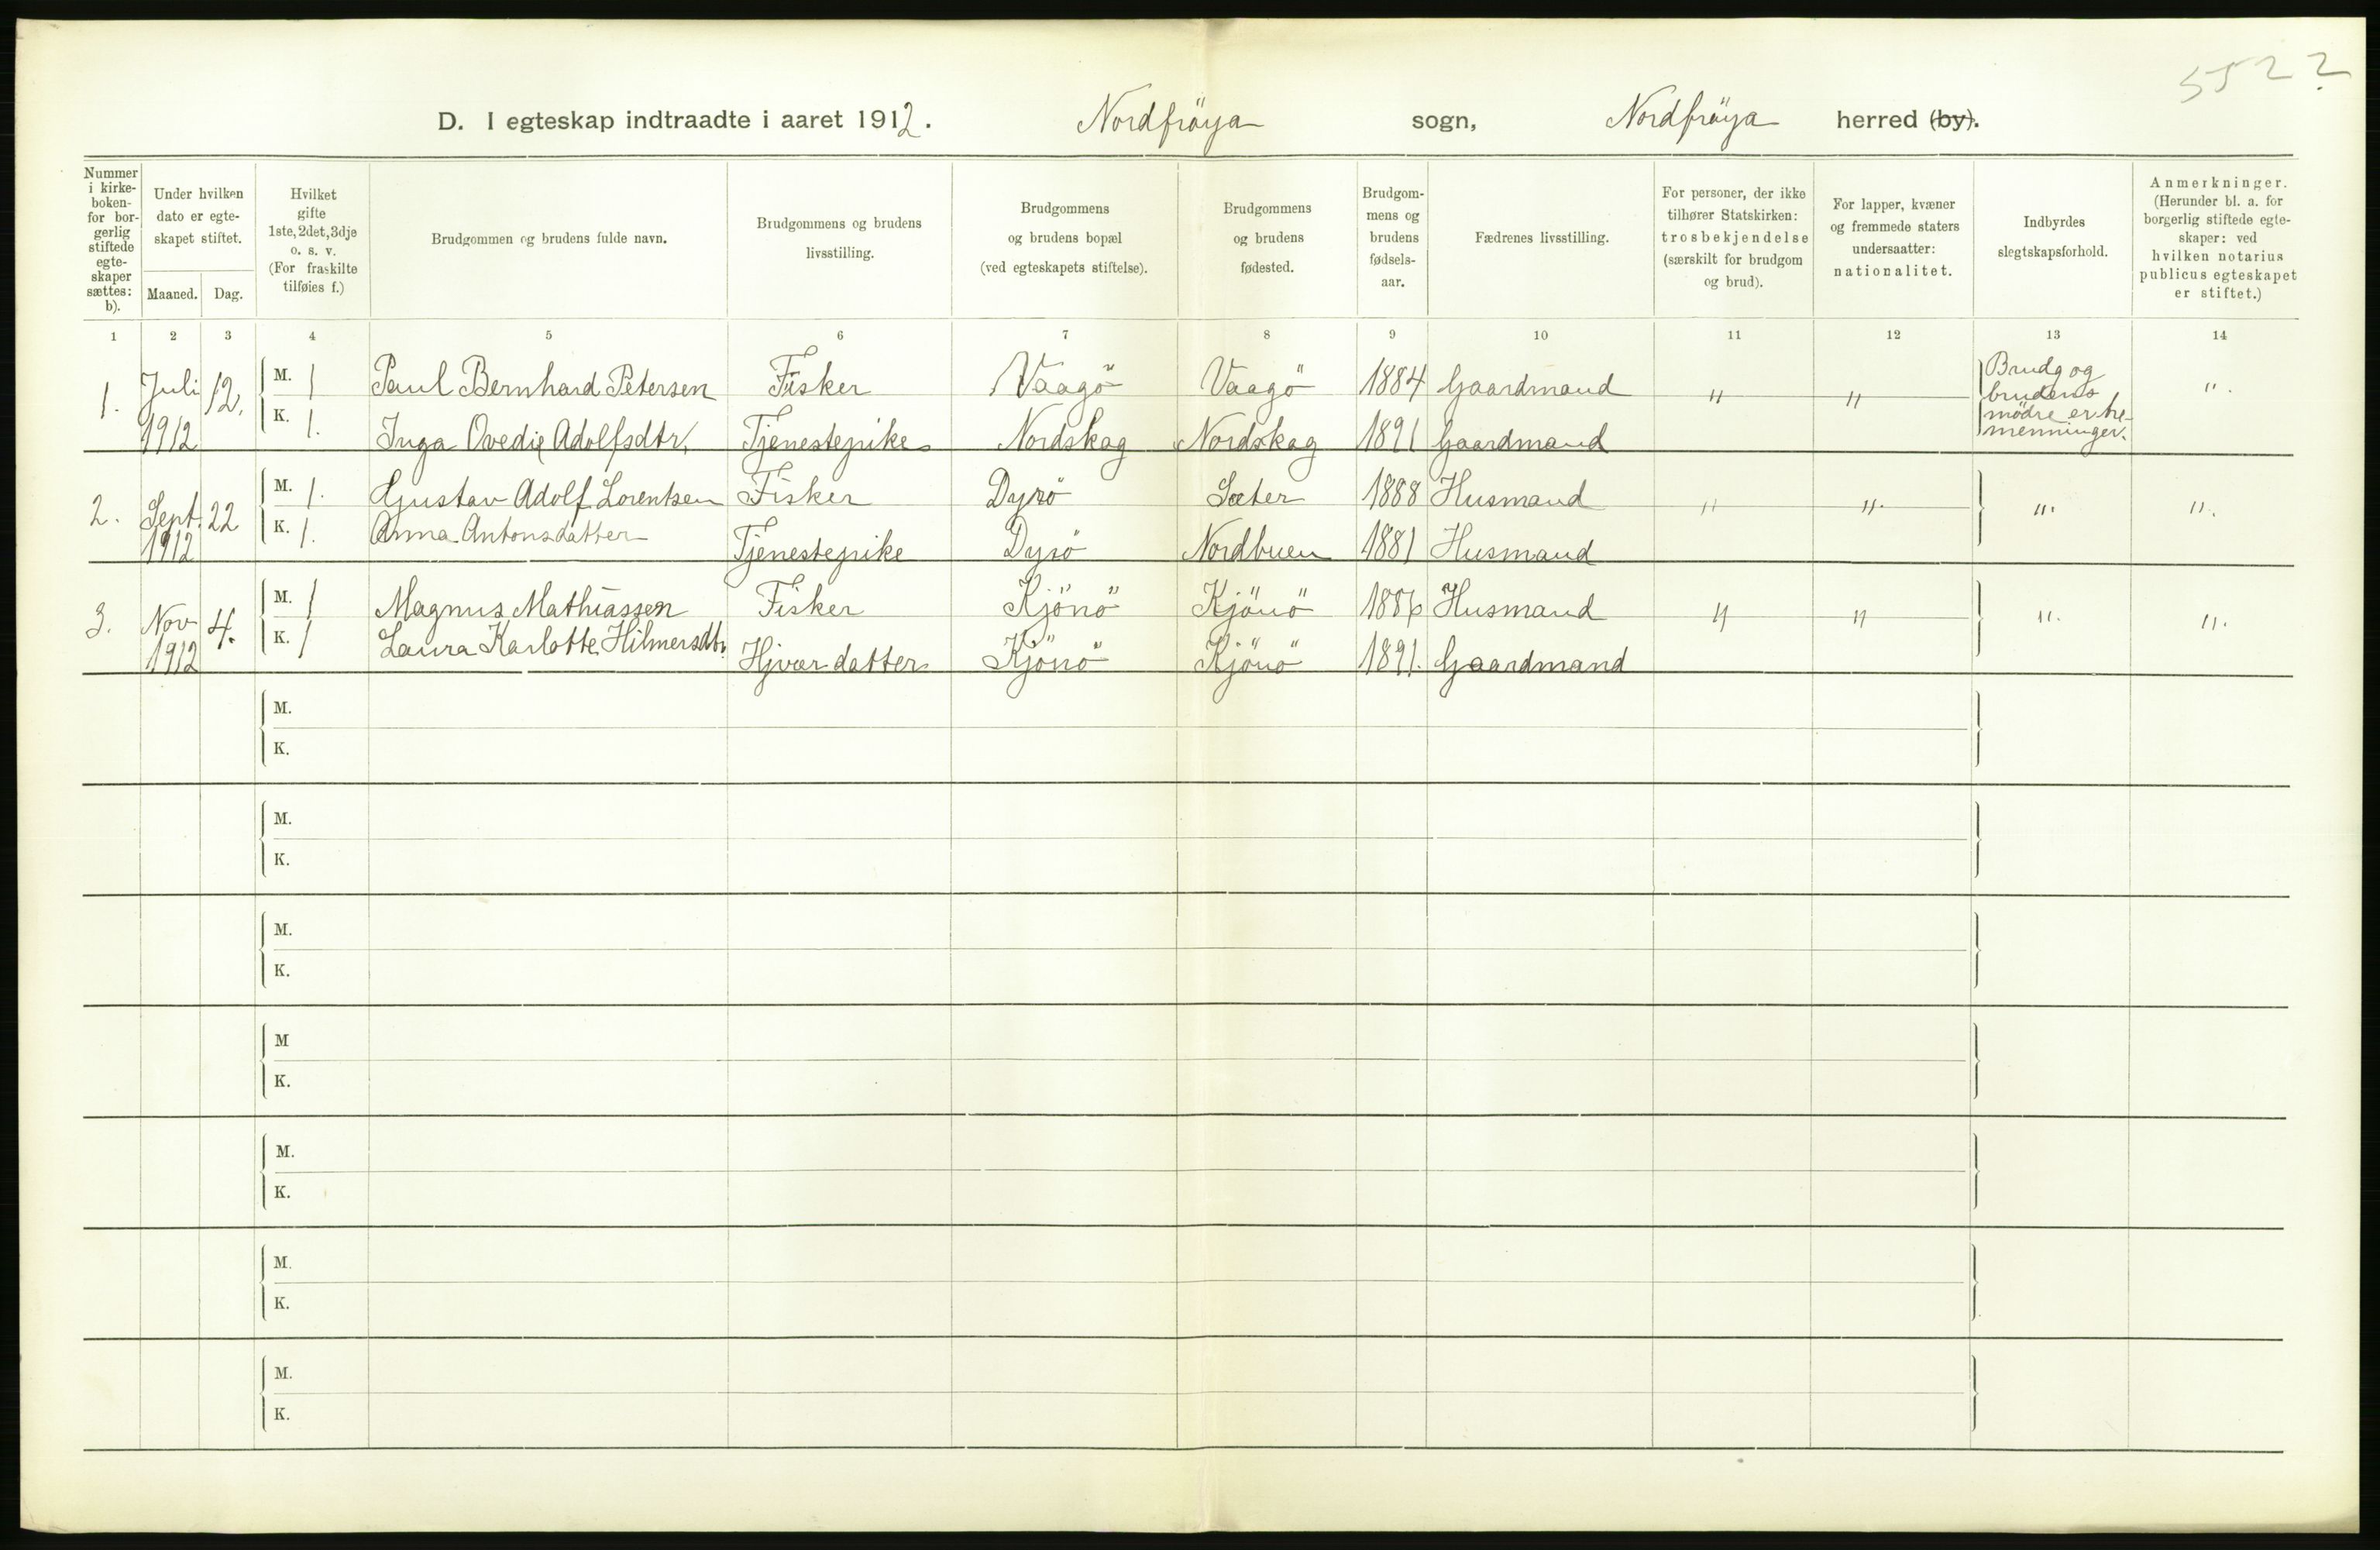 552 2
D. I egteskap indtraadte i aaret 1912. Nordfröya sogn, Nordfröya herred (by).
Nummer i kirke-boken- for bor-gerlig stiftede egte-skaper sættes: b).
Under hvilken dato er egte-skapet stiftet.
Maaned. Dag.
Hvilket gifte 1ste, 2det, 3dje o. s. v. (For fraskilte tilføies f.)
Brudgommen og brudens fulde navn.
Brudgommens og brudens livsstilling.
Brudgommens og brudens bopæl (ved egteskapets stiftelse).
Brudgommens og brudens fødested.
Brudgom-mens og brudens fødsels-aar.
Fædrenes livsstilling.
For personer, der ikke tilhører Statskirken: trosbekjendelse (særskilt for brudgom og brud).
For lapper, kvæner og fremmede staters undersaatter: nationalitet.
Indbyrdes slegtskapsforhold.
Anmerkninger. (Herunder bl. a. for borgerlig stiftede egte-skaper: ved hvilken notarius publicus egteskapet er stiftet.)
1 2 3 4 5 6 7 8 9 10 11 12 13 14
1. Juli 1912 12. M. 1 Paul Bernhard Petersen Fisker Vaagö Vaagö 1884 Gaardmand " " Brudg og brudens mödre er tre-menninger. ".
K. 1. Inga Ovedie Adolfsdtr. Tjenestepike Nordskag Nordskag 1891 Gaardmand
2. Sept. 1912 22 M. 1. Gustav Adolf Lorentsen Fisker Dyrö Sæter 1888 Husmand " ". ". ".
K. 1. Anna Antonsdatter Tjenestepike Dyrö Nordbuen 1881 Husmand
3. Nov 1912 4. M. 1 Magnus Mathiassen Fisker Kjönö Kjönö 1886 Husmand " " ". ".
K. 1 Laura Karlotte Hilmersdtr. Hjvær datter Kjönö Kjönö 1891. Gaardmand
M.
K.
M.
K.
M.
K.
M
K.
M.
K.
M.
K.
M.
K.